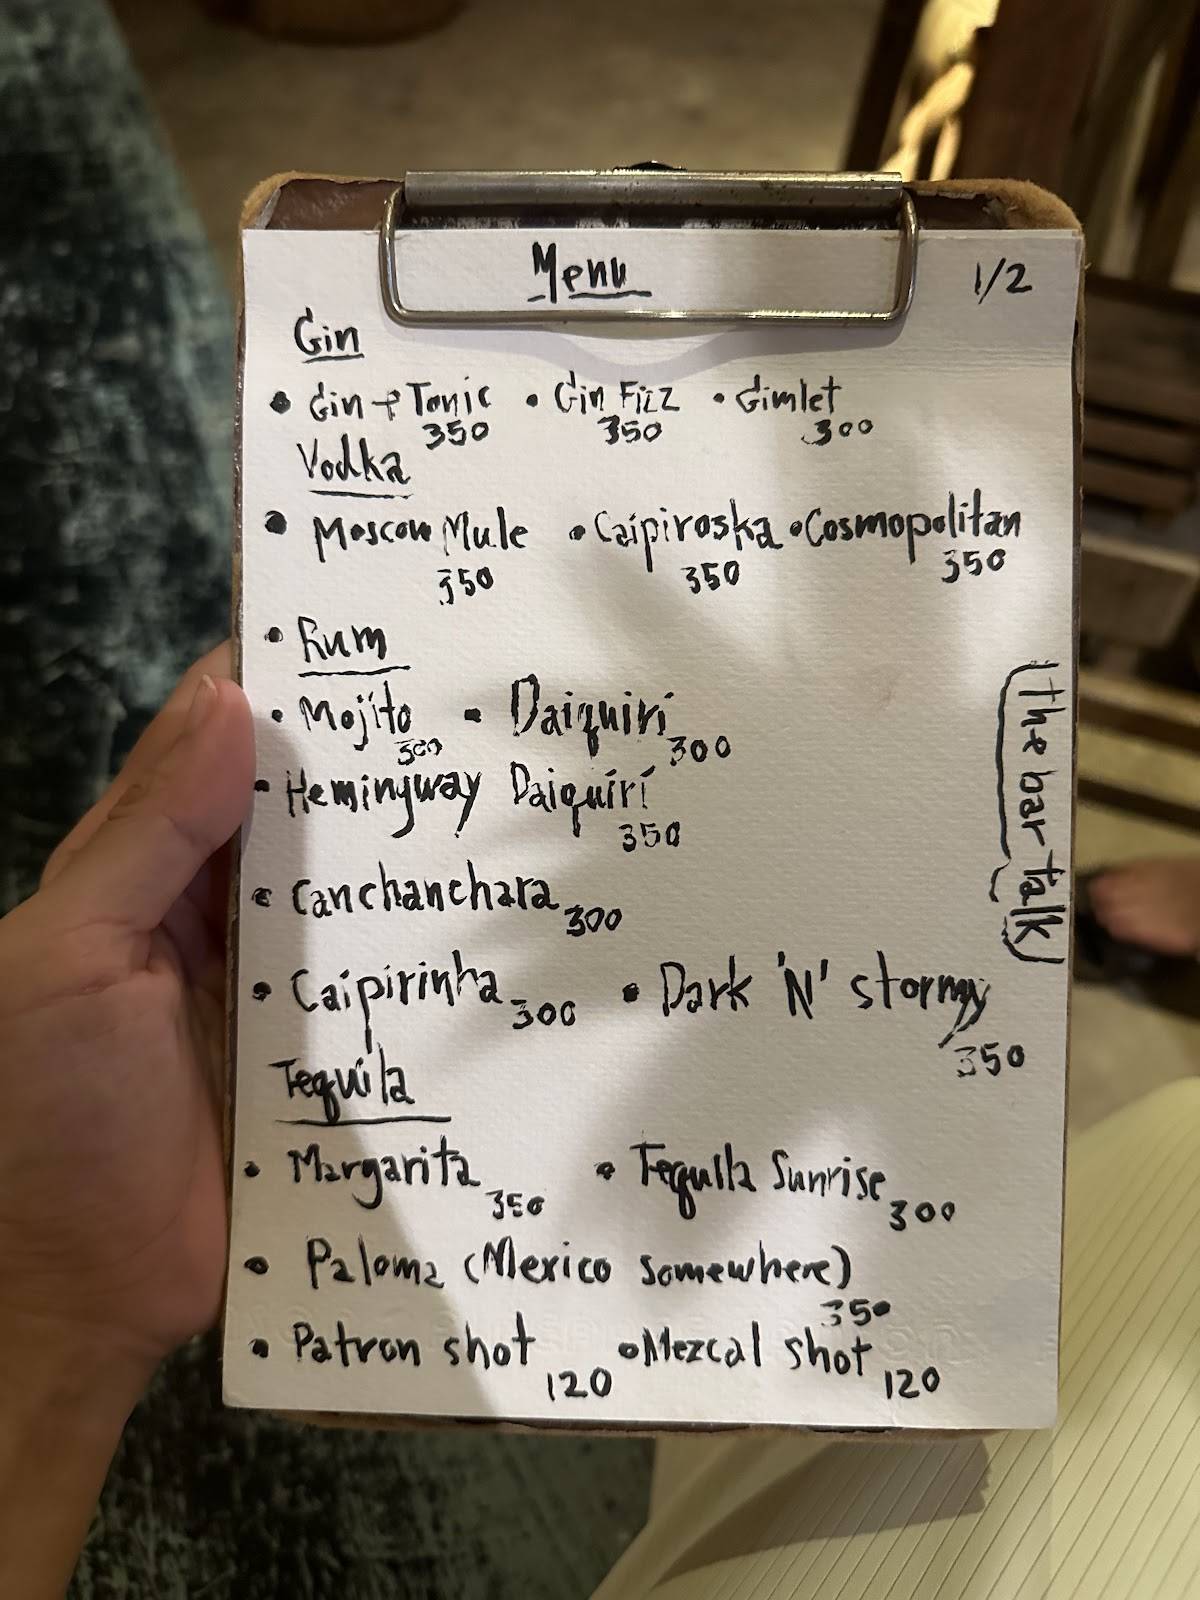 Menu
1/2
Gin
• Gin + Tonic • Gin Fizz • Gimlet
350 350 300
Vodka
• Moscow Mule • Caipiroska • Cosmopolitan
350 350 350
• Rum
• Mojito • Daiquiri
300 300
• Hemingway Daiquiri
350
• Canchanchara
300
• Caipirinha • Dark 'N' stormy
300 350
Tequila
• Margarita • Tequila Sunrise
350 300
• Paloma (Mexico somewhere)
350
• Patron shot • Mezcal shot
120 120
(the bar talk)